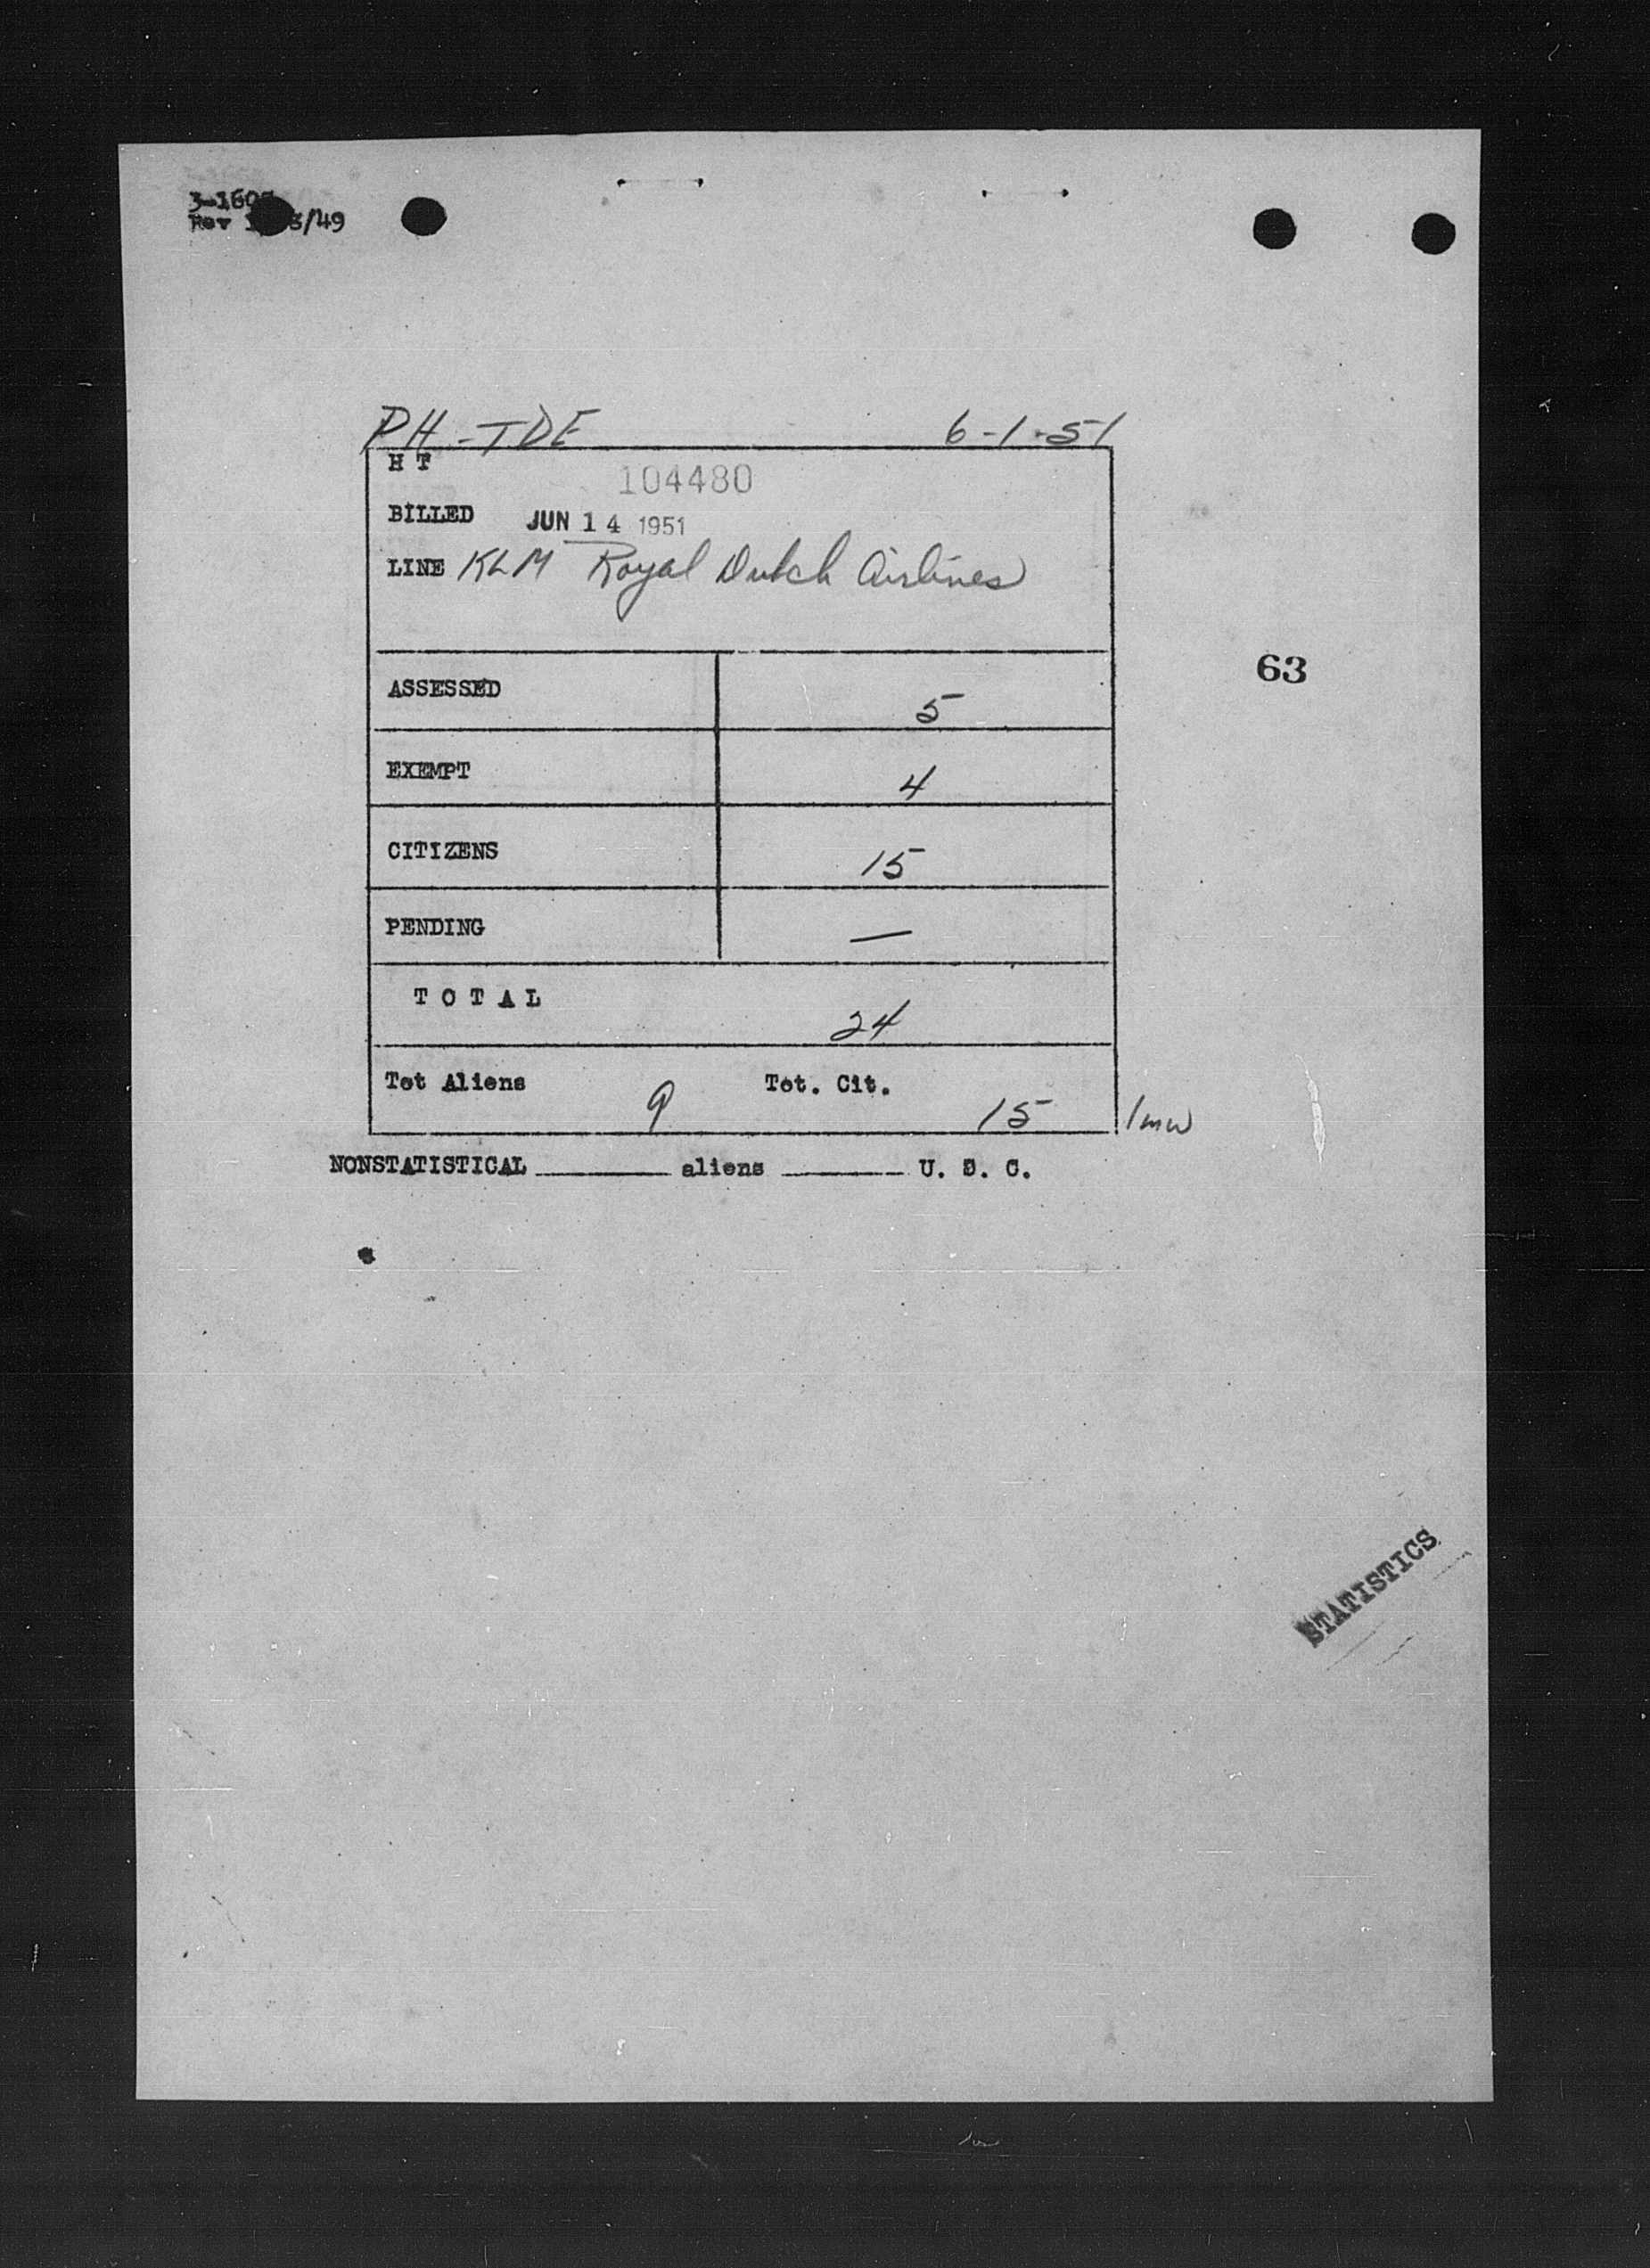 3-160
Rev 3/49
PH-TDE 6-1-51
H T
104480
BILLED JUN 14 1951
LINE KLM Royal Dutch Airlines
63
ASSESSED 5
EXEMPT 4
CITIZENS 15
PENDING —
T O T A L 24
Tot Aliens 9 Tot. Cit. 15 /mw
NONSTATISTICAL ________ aliens ________ U. S. C.
STATISTICS